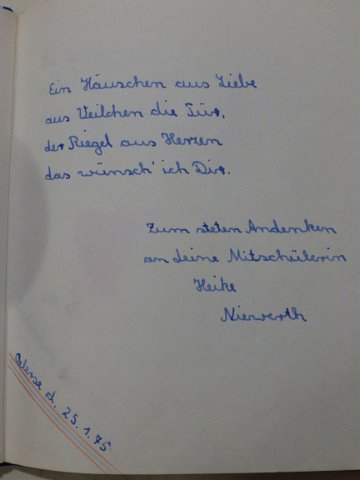 Ein Häuschen aus Liebe
aus Veilchen die Tür,
der Riegel aus Herzen
das wünsch' ich Dir.
Zum steten Andenken
an deine Mitschülerin
Heike
Nierverth
d. 25.1.75